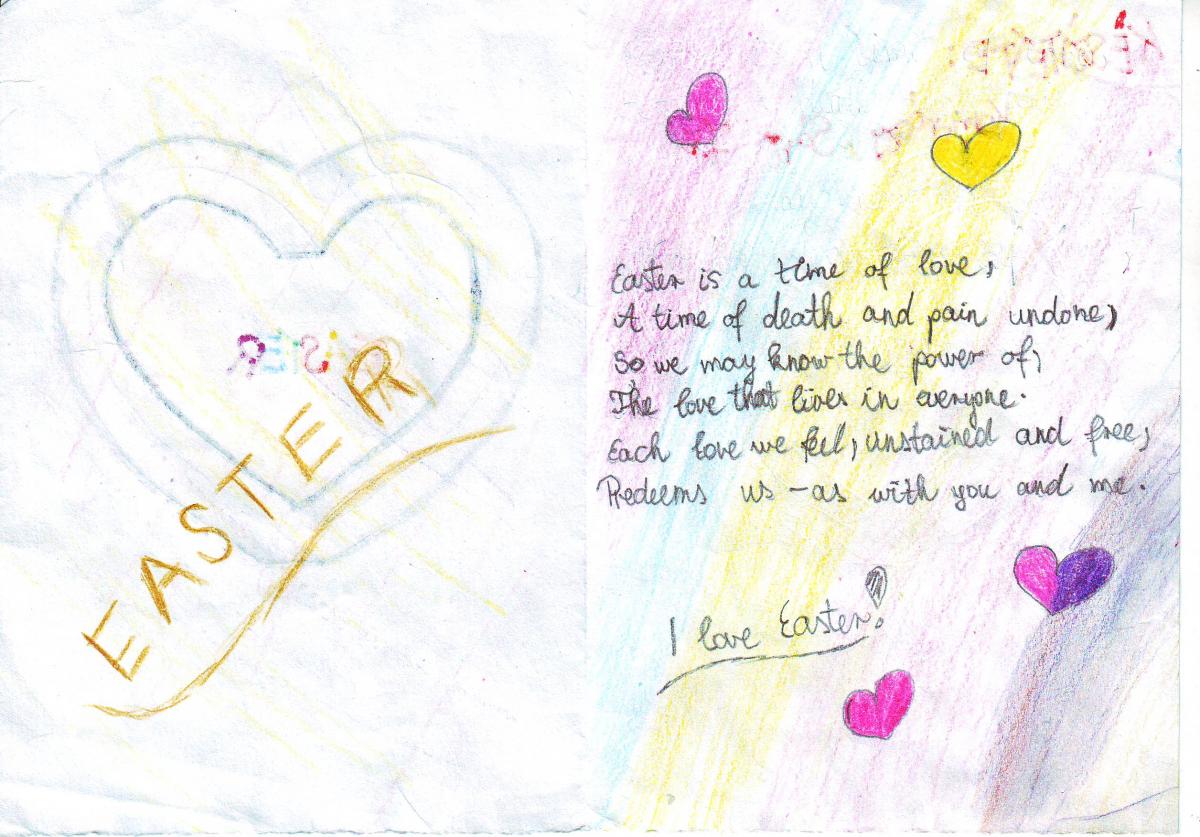 EASTER
Easter is a time of love,
A time of death and pain undone,
So we may know the power of,
The love that lives in everyone.
Each love we feel, unstained and free,
Redeems us - as with you and me.
I love Easter!